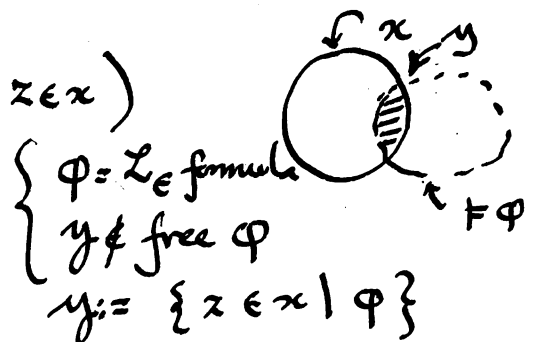 x y
z ∈ x )
φ = L∈ formula
y ∉ free φ
⊨ φ
y := { z ∈ x | φ }